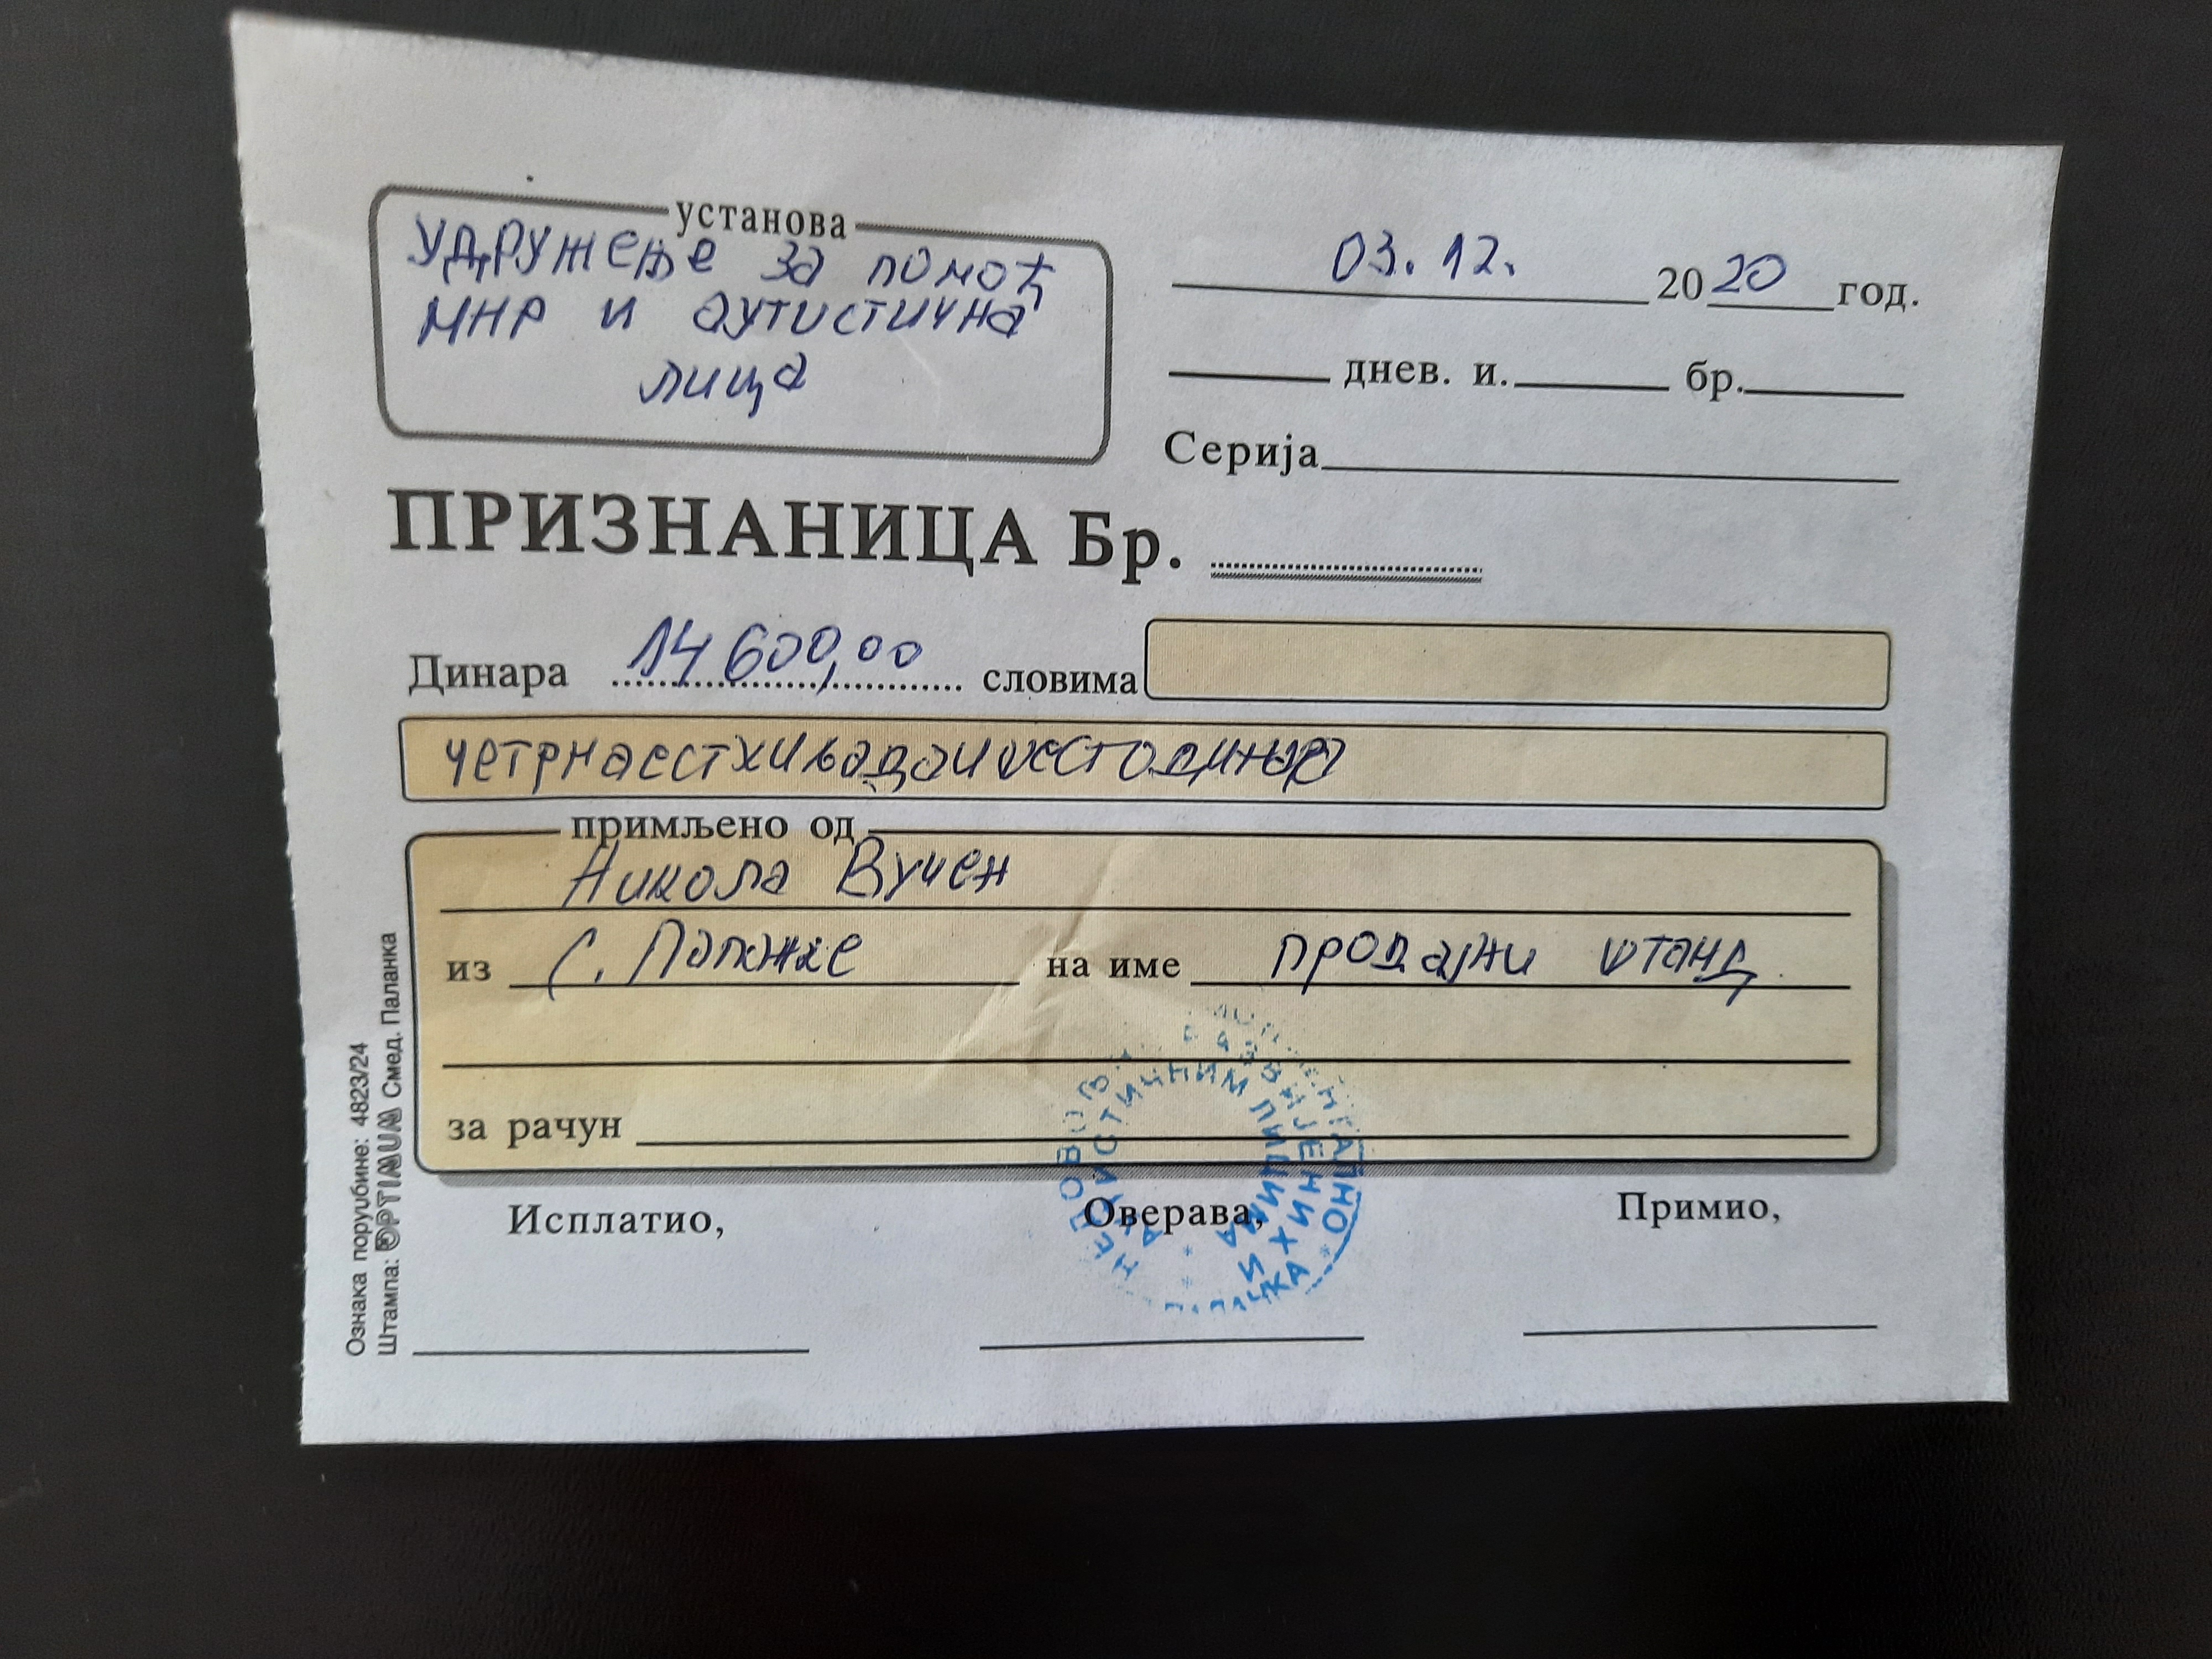 установа
Удружење за помоћ
МНР и аутистична
лица
03. 12. 2020 год.
днев. и. бр.
Серија
ПРИЗНАНИЦА Бр.
Динара 14 600,00 словима
четрнаестхиљадаишестодинара
примљено од
Никола Вучен
из С. Паланке на име продајни штанд
за рачун
Исплатио, Оверава, Примио,
АУТИСТИЧНИМ ЛИЦИМА
Ознака поруџбине: 4823/24
Штампа: OPTIMUM Смед. Паланка